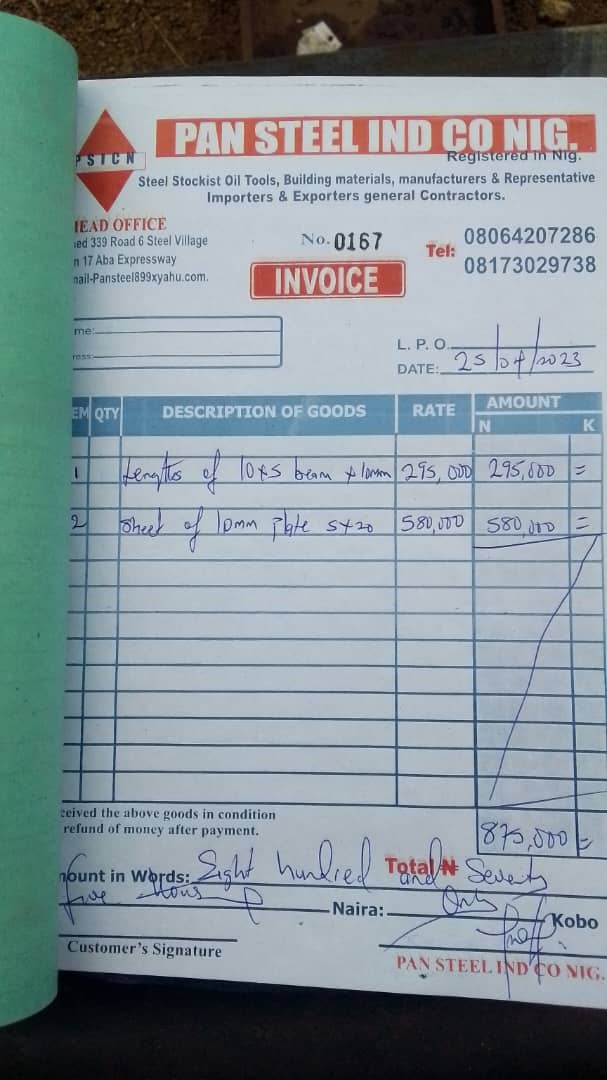 PSICN
PAN STEEL IND CO NIG.
Registered in Nig.
Steel Stockist Oil Tools, Building materials, manufacturers & Representative
Importers & Exporters general Contractors.
HEAD OFFICE
339 Road 6 Steel Village
17 Aba Expressway
ail-Pansteel899xyahu.com.
No. 0167
INVOICE
Tel: 08064207286
08173029738
me:
ress:
L. P. O.
DATE: 25/04/2023
EM QTY DESCRIPTION OF GOODS RATE AMOUNT
N K
1 Lengths of 10x5 beam x 10mm 295,000 295,000 =
2 Sheet of 10mm Plate 5x20 580,000 580,000 =
ceived the above goods in condition
refund of money after payment.
Total ₦ 875,000 =
ount in Words: Eight hundred and Seventy
five thous Only
Naira: Kobo
Customer's Signature
PAN STEEL IND CO NIG.